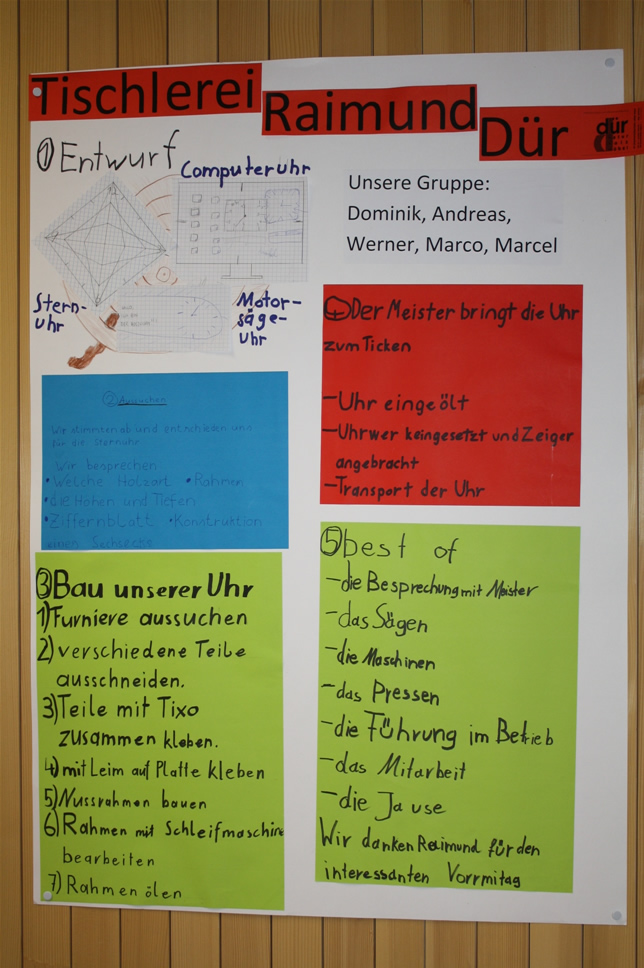 Tischlerei Raimund Dür
dür
① Entwurf
Computeruhr
Stern-
uhr
Motor-
säge-
uhr
Unsere Gruppe:
Dominik, Andreas,
Werner, Marco, Marcel
② Aussuchen
Wir stimmten ab und entschieden uns
für die Sternuhr.
Wir besprechen
• Welche Holzart • Rahmen
• die Höhen und Tiefen
• Ziffernblatt • Konstruktion
③ Bau unserer Uhr
1) Furniere aussuchen
2) verschiedene Teile
ausschneiden.
3) Teile mit Tixo
zusammen kleben.
4) mit Leim auf Platte kleben
5) Nussrahmen bauen
6) Rahmen mit Schleifmaschine
bearbeiten
7) Rahmen ölen
④ Der Meister bringt die Uhr
zum Ticken
- Uhr eingeölt
- Uhrwerk eingesetzt und Zeiger
angebracht
- Transport der Uhr
⑤ best of
- die Besprechung mit Meister
- das Sägen
- die Maschinen
- das Pressen
- die Führung im Betrieb
- das Mitarbeit
- die Jause
Wir danken Raimund für den
interessanten Vorrmitag